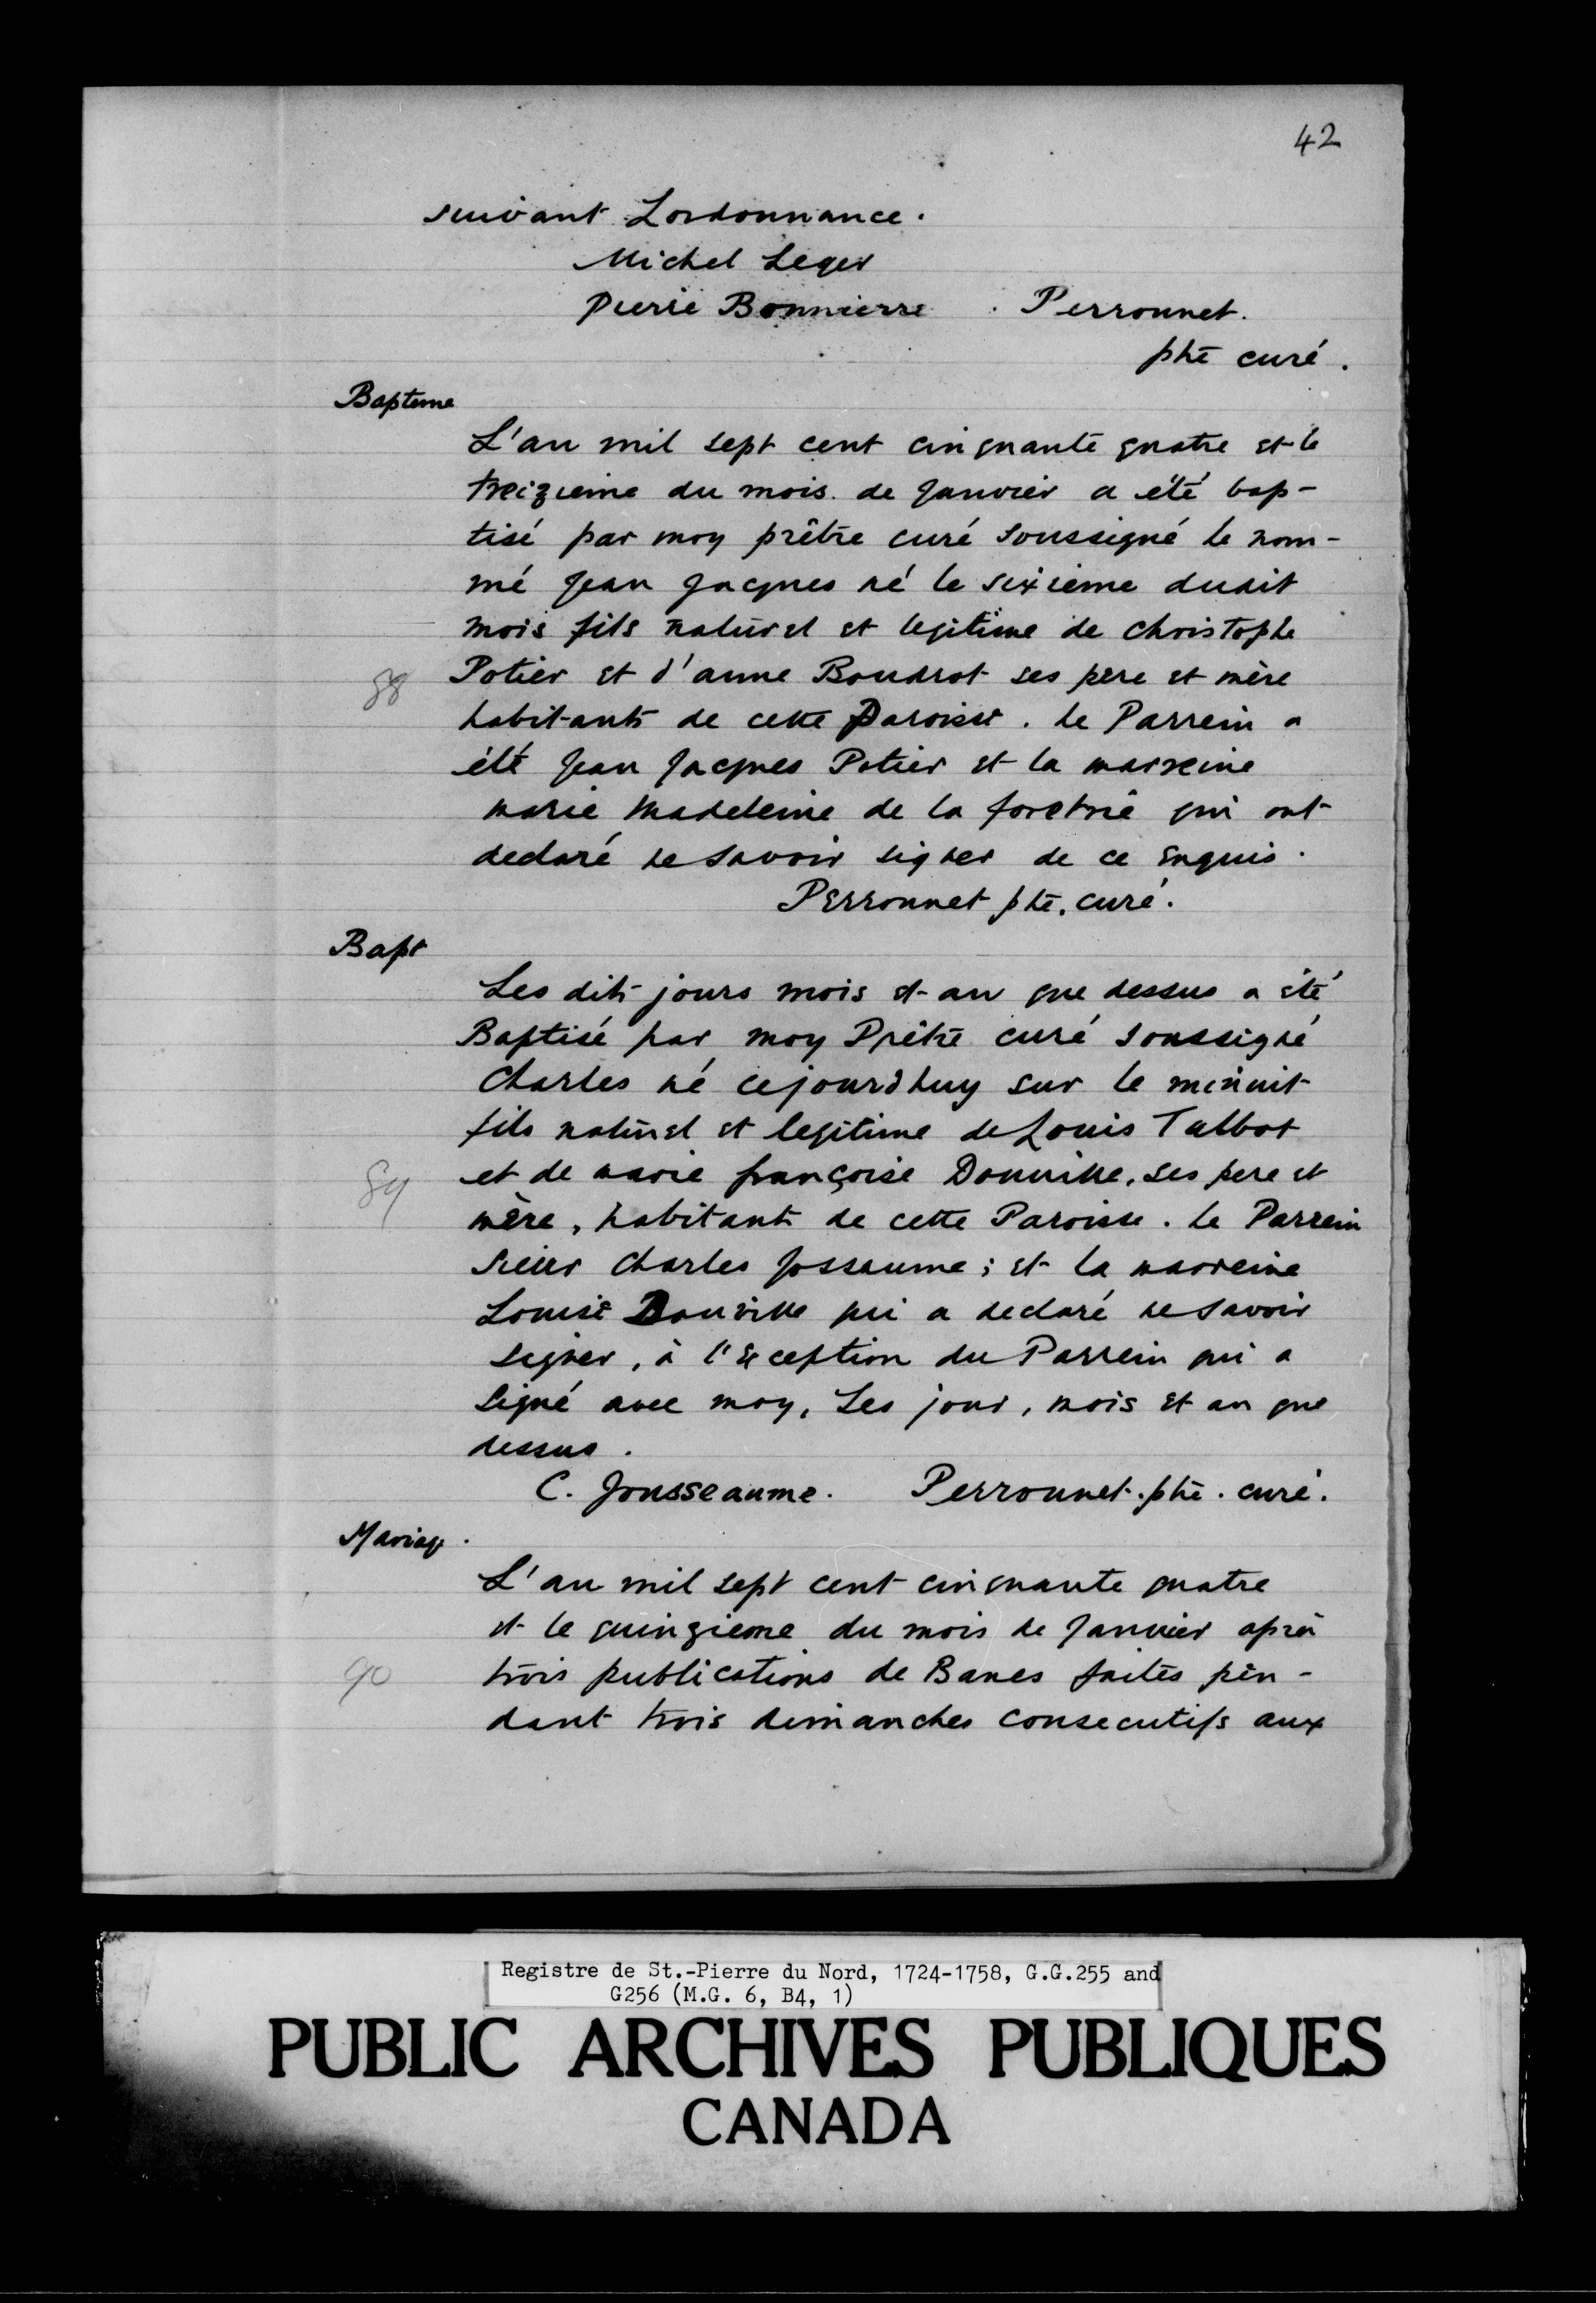 42
suivant Lordonnance.
Michel Leger
Pierre Bonnierre. Perronnet.
ptre curé.
Bapteme
L'an mil sept cent cinquante quatre et le
treizieme du mois de Janvier a été bap-
tisé par moy prêtre curé soussigné le nom-
mé Jean Jacques né le sixieme dudit
mois fils naturel et legitime de christophe
88 Potier et d'anne Boudrot ses pere et mère
habitants de cette Paroisse. le Parrein a
été Jean Jacques Potier et la marreine
marie Madeleine de la foretrie qui ont
declaré ne savoir signer de ce enquis.
Perronnet ptre. curé.
Bapt
Les dits jours mois et an que dessus a été
Baptisé par moy Prêtre curé soussigné
Charles né cejourdhuy sur le minuit
fils naturel et legitime de Louis Talbot
89 et de marie françoise Douville, ses pere et
mère, habitants de cette Paroisse. le Parrein
sieur Charles Josseaume; et la marreine
Louise Douville qui a declaré ne savoir
signer, à l'exception du Parrein qui a
signé avec moy, Les jour, mois et an que
dessus.
C. Jousseaume. Perronnet. ptre. curé.
Mariage.
L'an mil sept cent cinquante quatre
et le quinzieme du mois de Janvier après
90 trois publications de Banes faites pen-
dant trois dimanches consecutifs aux
Registre de St.-Pierre du Nord, 1724-1758, G.G.255 and
G256 (M.G. 6, B4, 1)
PUBLIC ARCHIVES PUBLIQUES
CANADA